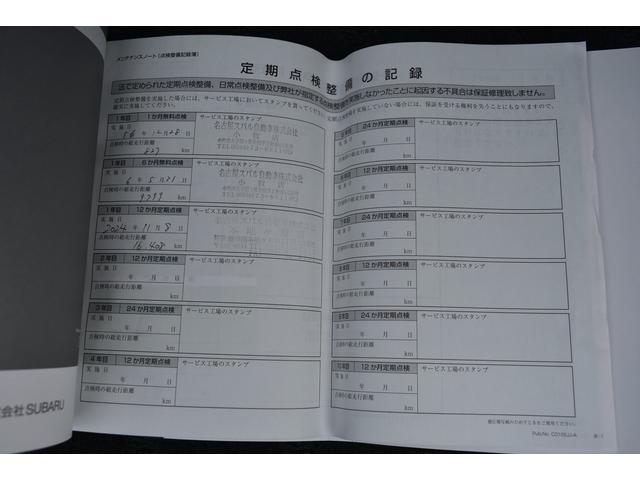 メンテナンスノート(点検整備記録簿)
定期点検整備の記録
法で定められた定期点検整備、日常点検整備及び弊社が指定する点検整備を実施しなかったことに起因する不具合は保証修理致しません。
定期点検整備を実施した場合には、サービス工場においてスタンプを
確実に実施してください。
実施していない場合には、保証を受ける権利を失うことにもなりますので、
1年目 1か月無料点検 サービス工場のスタンプ
実施日 年12月28日
点検時の総走行距離
827 km
名古屋スバル自動車株式会社
小牧店
1年目 6か月無料点検 サービス工場のスタンプ
実施日 6年5月21日
点検時の総走行距離
km
名古屋スバル自動車株式会社
小牧店
1年目 12か月定期点検 サービス工場のスタンプ
実施日
2024年11月8日
点検時の総走行距離
16,408 km
2年目 12か月定期点検 サービス工場のスタンプ
実施日
年 月 日
点検時の総走行距離
km
3年目 24か月定期点検 サービス工場のスタンプ
実施日
年 月 日
点検時の総走行距離
km
4年目 12か月定期点検 サービス工場のスタンプ
実施日
年 月 日
点検時の総走行距離
km
24か月定期点検 サービス工場のスタンプ
実施日
年 月 日
点検時の総走行距離
km
12か月定期点検 サービス工場のスタンプ
実施日
年 月 日
点検時の総走行距離
km
24か月定期点検 サービス工場のスタンプ
実施日
年 月 日
点検時の総走行距離
km
12か月定期点検 サービス工場のスタンプ
実施日
年 月 日
点検時の総走行距離
km
24か月定期点検 サービス工場のスタンプ
実施日
年 月 日
点検時の総走行距離
km
10年目 12か月定期点検 サービス工場のスタンプ
実施日
年 月 日
点検時の総走行距離
km
会社SUBARU